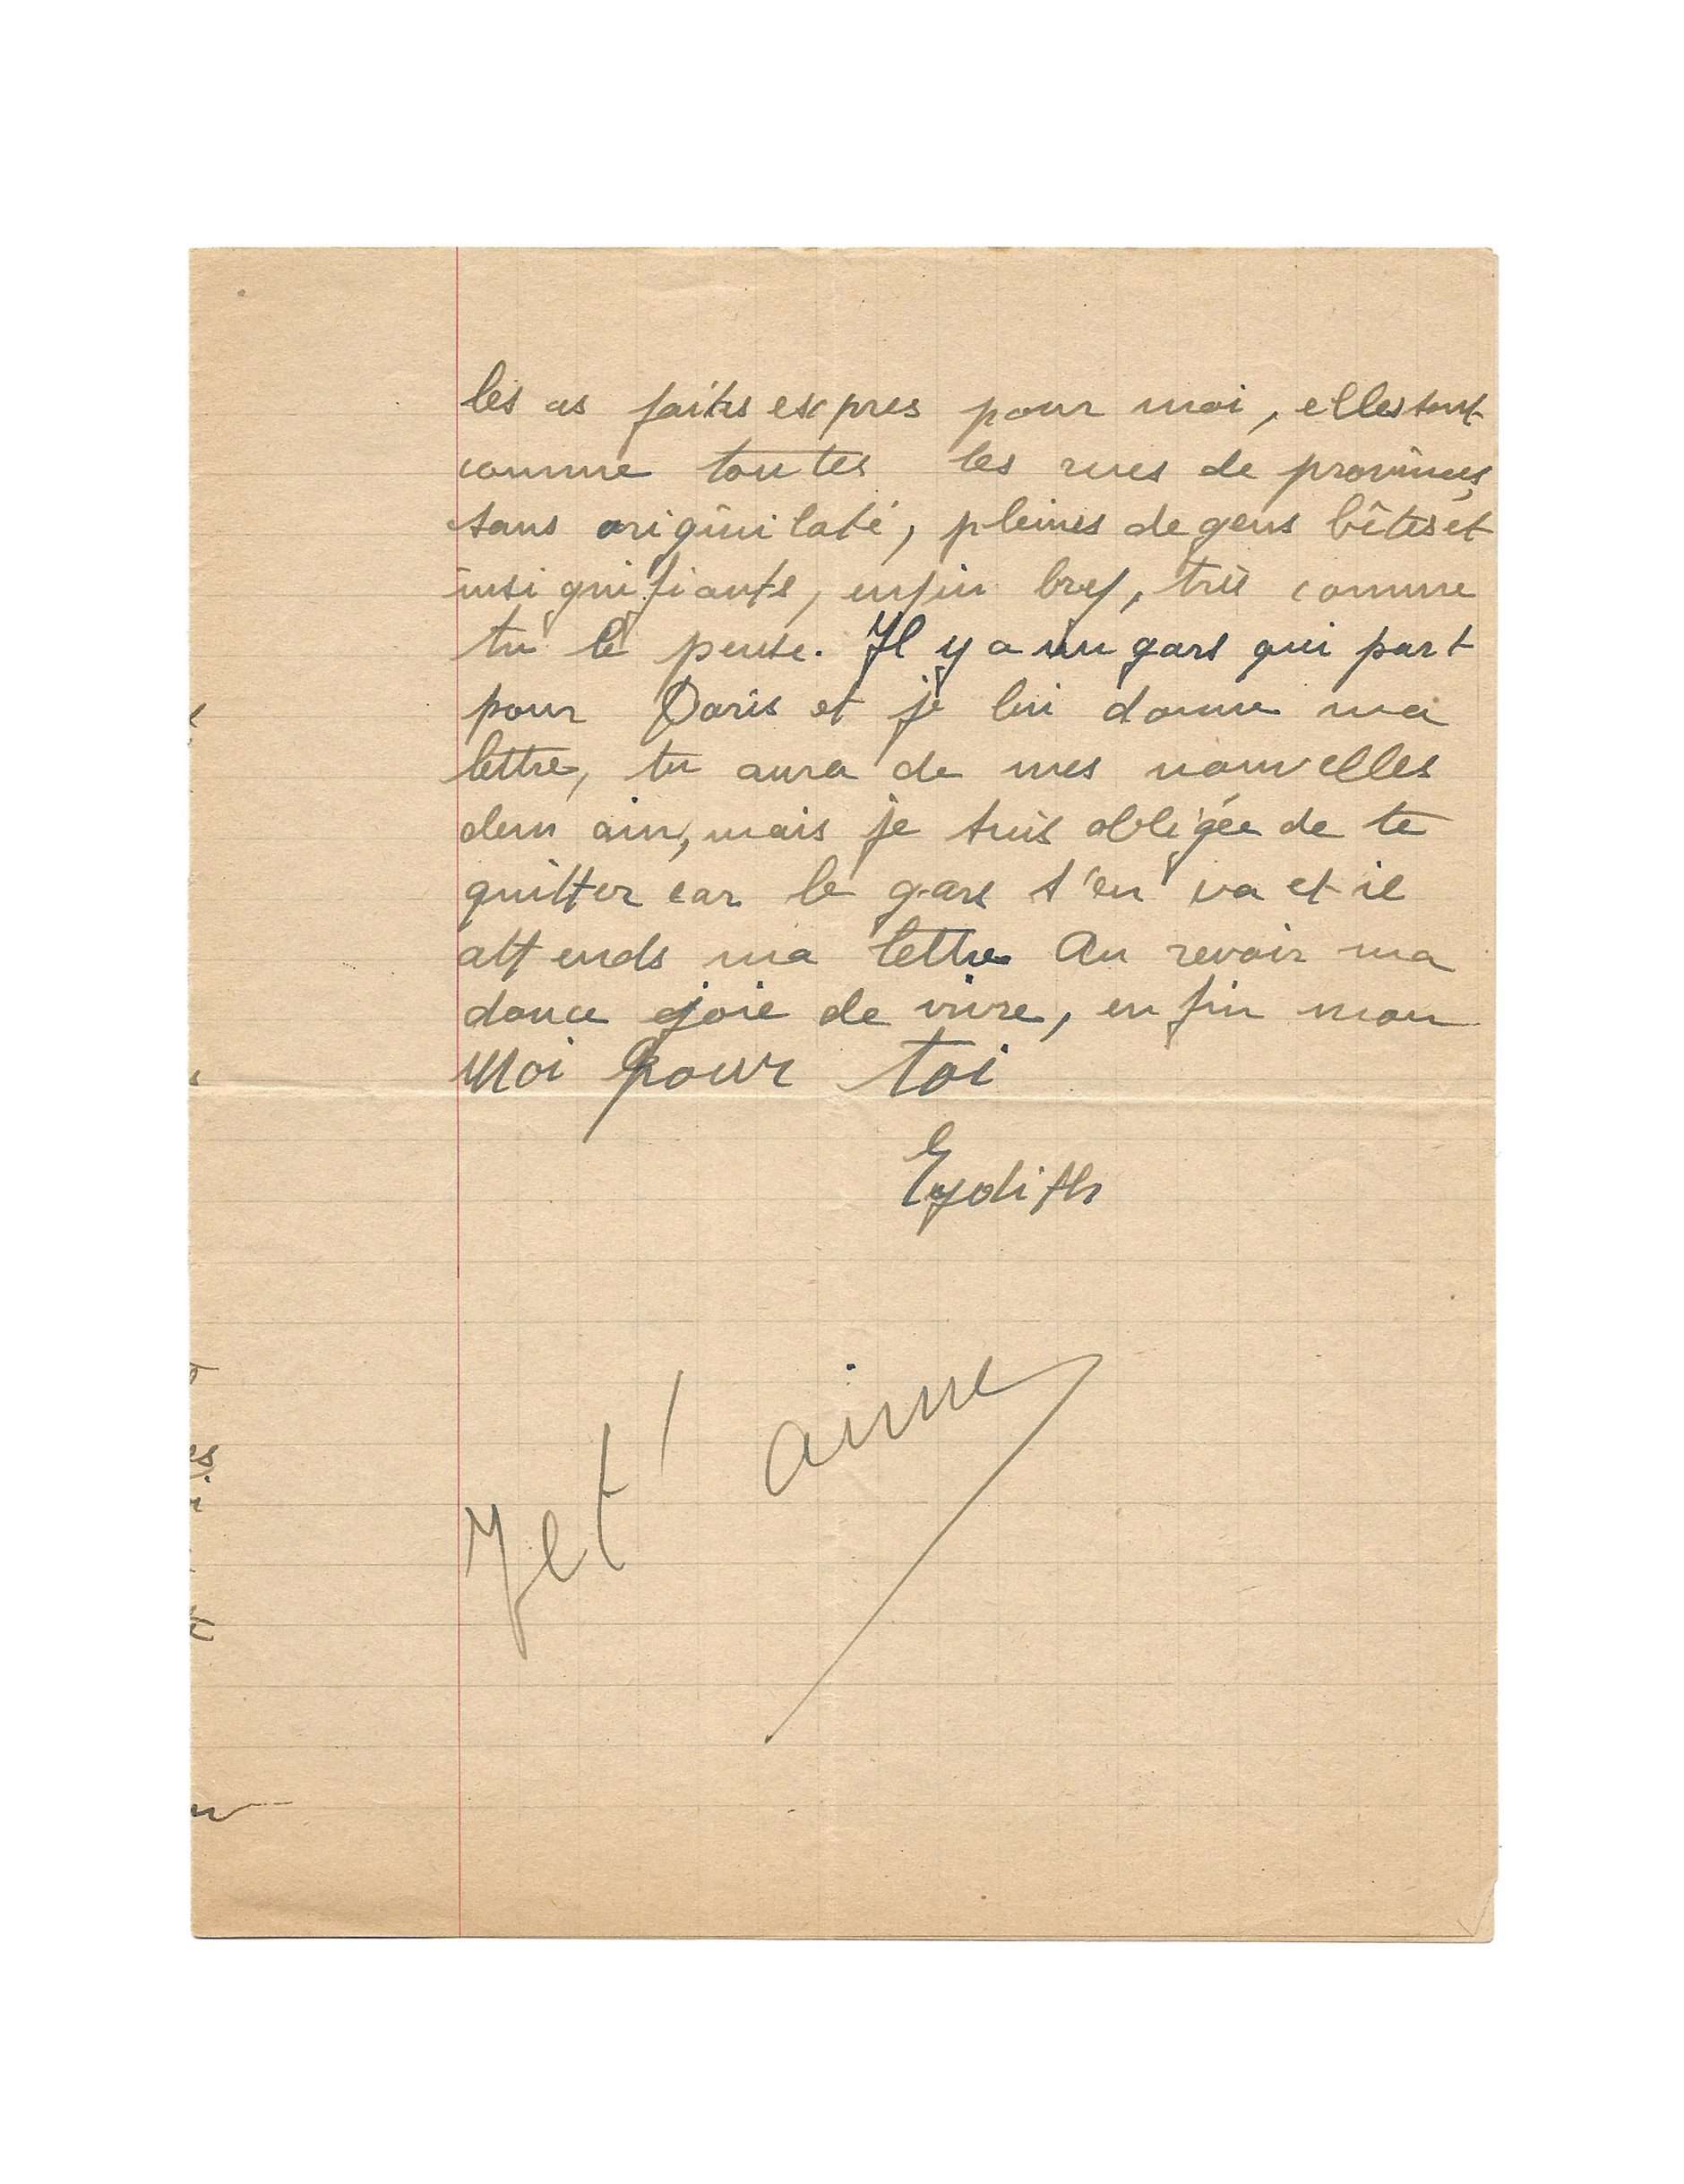 les as faites expres pour moi, elles sont
comme toutes les rues de provinces,
sans originilaté, pleines de gens bêtes et
insignifiants, enfin bref, très comme
tu le pense. Il y a un gars qui part
pour Paris et je lui donne ma
lettre, tu aura de mes nouvelles
demain, mais je suis obligée de te
quitter car le gars s'en va et il
attends ma lettre Au revoir ma
douce joie de vivre, enfin mon
Moi pour toi
Eydith
Je t'aime
es